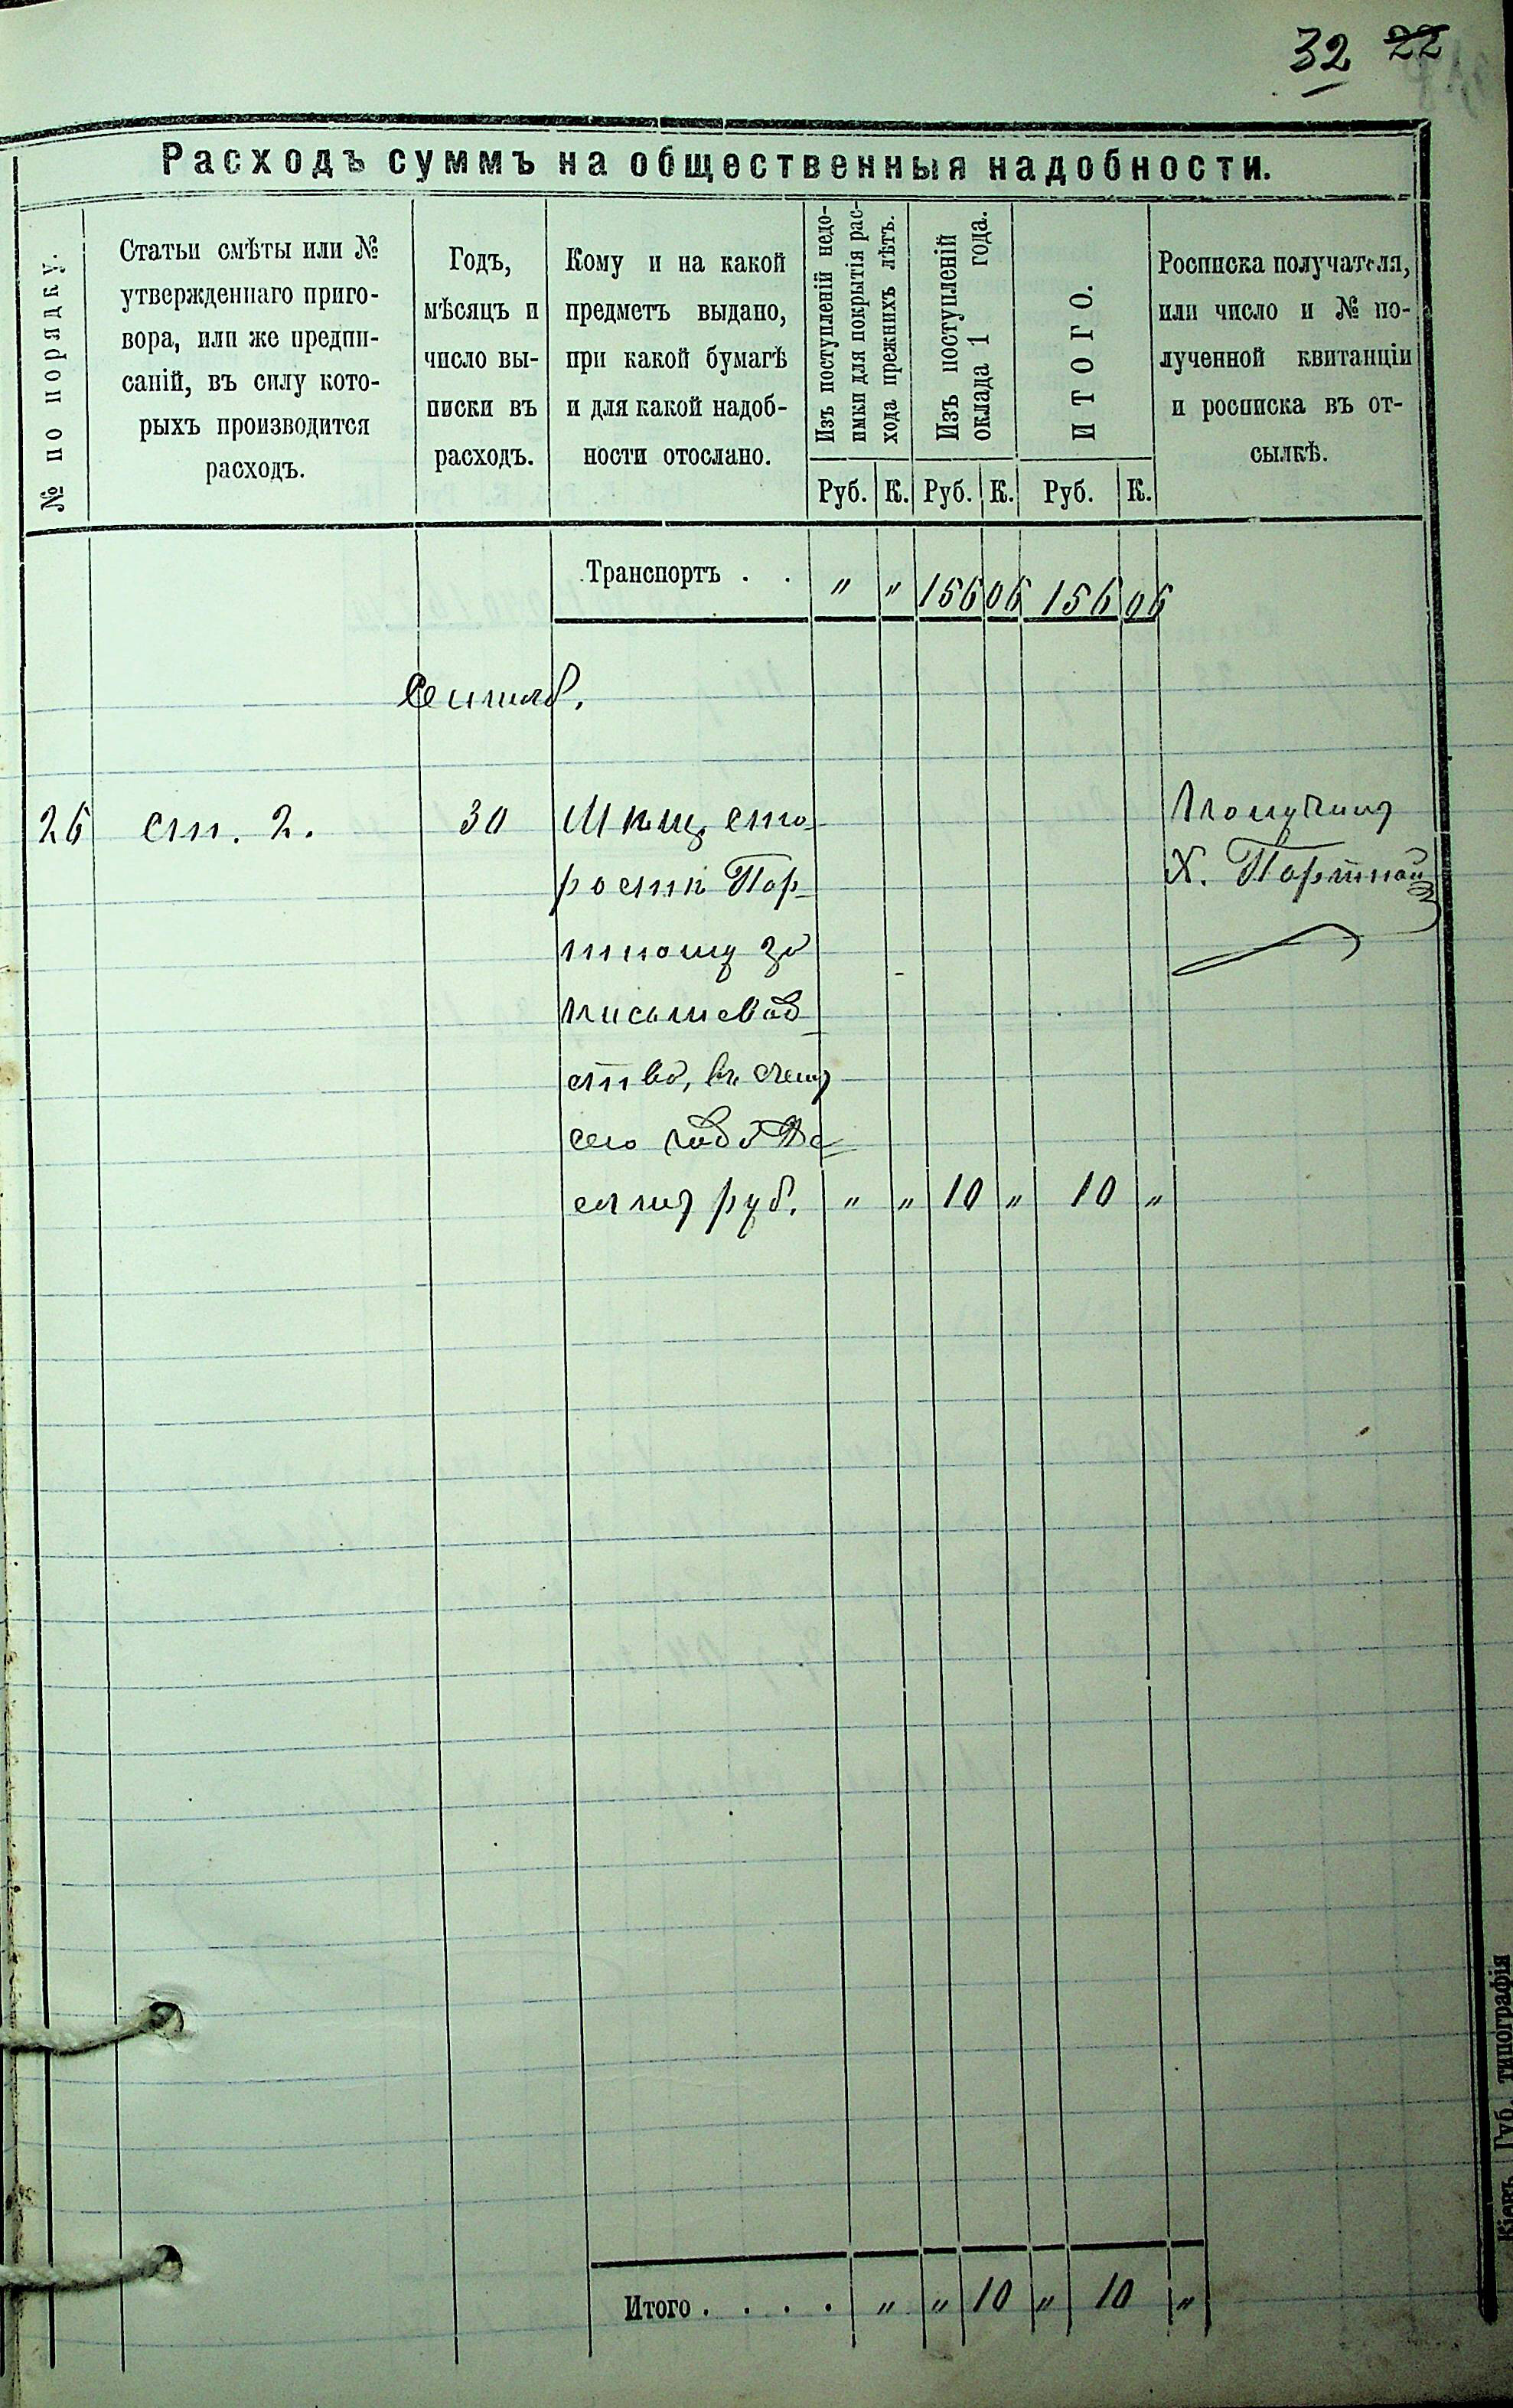 32 22
Расходъ суммъ на общественныя надобности.
№ по порядку.
Статьи смѣты или №
утвержденнаго приго-
вора, или же предпи-
саній, въ силу кото-
рыхъ производится
расходъ.
Годъ,
мѣсяцъ и
число вы-
писки въ
расходъ.
Кому и на какой
предметъ выдано,
при какой бумагѣ
и для какой надоб-
ности отослано.
Изъ поступленій недо-
имки для покрытія рас-
хода прежнихъ лѣтъ.
Изъ поступленій
оклада 1 года.
ИТОГО.
Росписка получателя,
или число и № по-
лученной квитанціи
и росписка въ от-
сылкѣ.
Руб. К. Руб. К. Руб. К.
Транспортъ . . " " 156 06 156 06
Сентяб.
26 ст. 2. 30 Мѣщ. ста-
ростѣ Пор-
тному за
письмовод-
ство, въ счетъ
сего года Де-
сять руб. " " 10 " 10 "
Получилъ
Х. Портной
Итого . . . . " " 10 " 10 "
Кіевъ. Губ. типографія